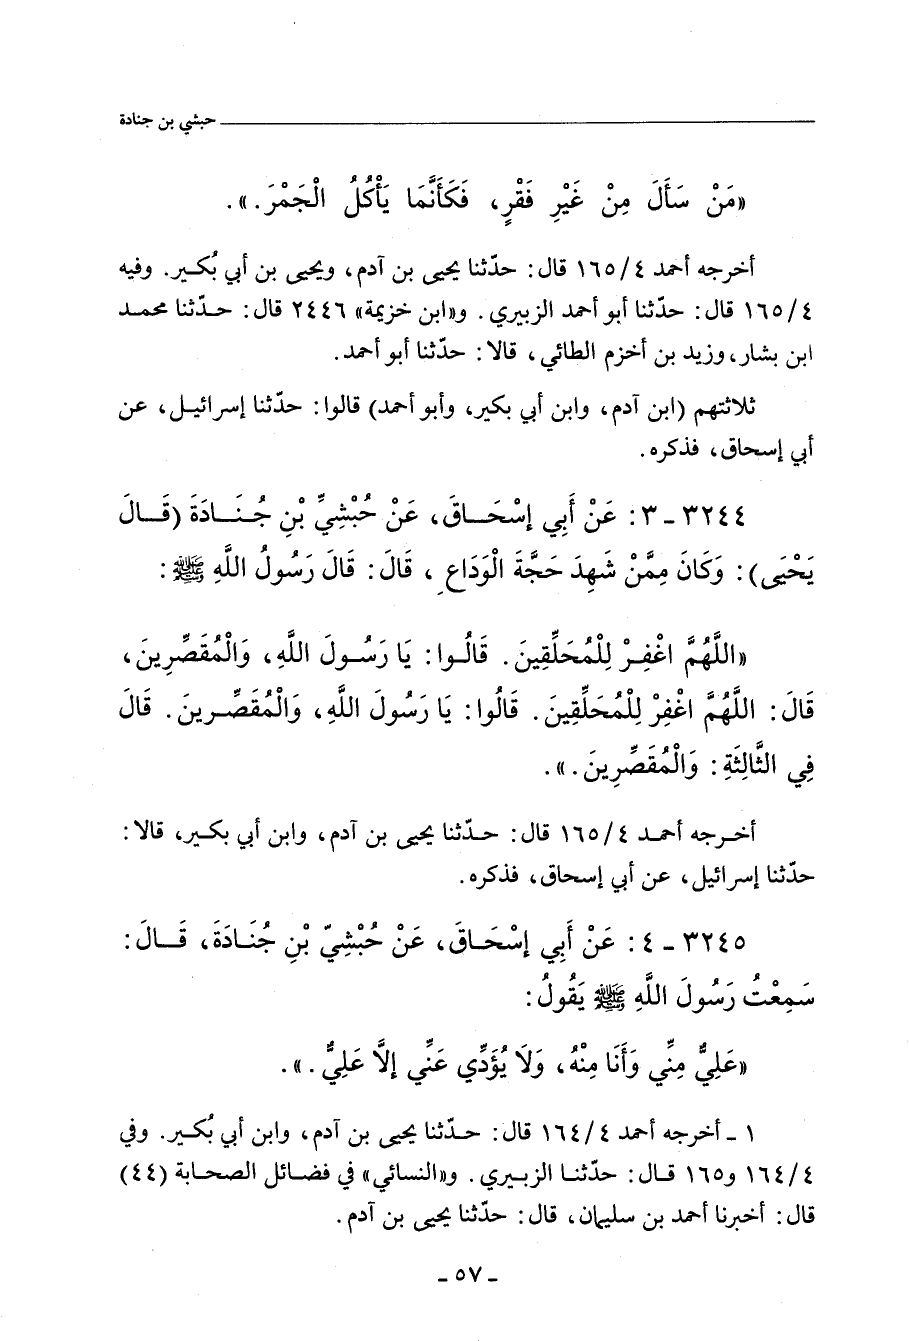 حبشي بن جنادة
«مَنْ سَأَلَ مِنْ غَيْرِ فَقْرٍ، فَكَأَنَّمَا يَأْكُلُ الْجَمْرَ.».
أخرجه أحمد ٤/١٦٥ قال: حدّثنا يحيى بن آدم، ويحيى بن أبي بُكير. وفيه
٤/١٦٥ قال: حدّثنا أبو أحمد الزبيري. و«ابن خزيمة» ٢٤٤٦ قال: حدّثنا محمد
ابن بشار، وزيد بن أخزم الطائي، قالا: حدّثنا أبو أحمد.
ثلاثتهم (ابن آدم، وابن أبي بكير، وأبو أحمد) قالوا: حدّثنا إسرائيل، عن
أبي إسحاق، فذكره.
٣٢٤٤ - ٣: عَنْ أَبِي إِسْحَاقَ، عَنْ حُبْشِيِّ بْنِ جُنَادَةَ (قَالَ
يَحْيَى): وَكَانَ مِمَّنْ شَهِدَ حَجَّةَ الْوَدَاعِ، قَالَ: قَالَ رَسُولُ اللَّهِ ﷺ:
«اللَّهُمَّ اغْفِرْ لِلْمُحَلِّقِينَ. قَالُوا: يَا رَسُولَ اللَّهِ، وَالْمُقَصِّرِينَ،
قَالَ: اللَّهُمَّ اغْفِرْ لِلْمُحَلِّقِينَ. قَالُوا: يَا رَسُولَ اللَّهِ، وَالْمُقَصِّرِينَ. قَالَ
فِي الثَّالِثَةِ: وَالْمُقَصِّرِينَ.».
أخرجه أحمد ٤/١٦٥ قال: حدّثنا يحيى بن آدم، وابن أبي بكير، قالا:
حدّثنا إسرائيل، عن أبي إسحاق، فذكره.
٣٢٤٥ - ٤: عَنْ أَبِي إِسْحَاقَ، عَنْ حُبْشِيّ بْنِ جُنَادَةَ، قَالَ:
سَمِعْتُ رَسُولَ اللَّهِ ﷺ يَقُولُ:
«عَلِيٌّ مِنِّي وَأَنَا مِنْهُ، وَلَا يُؤَدِّي عَنِّي إِلَّا عَلِيٌّ.».
١ - أخرجه أحمد ٤/١٦٤ قال: حدّثنا يحيى بن آدم، وابن أبي بُكير. وفي
٤/١٦٤ و١٦٥ قال: حدّثنا الزبيري. و«النسائي» في فضائل الصحابة (٤٤)
قال: أخبرنا أحمد بن سليمان، قال: حدّثنا يحيى بن آدم.
- ٥٧ -